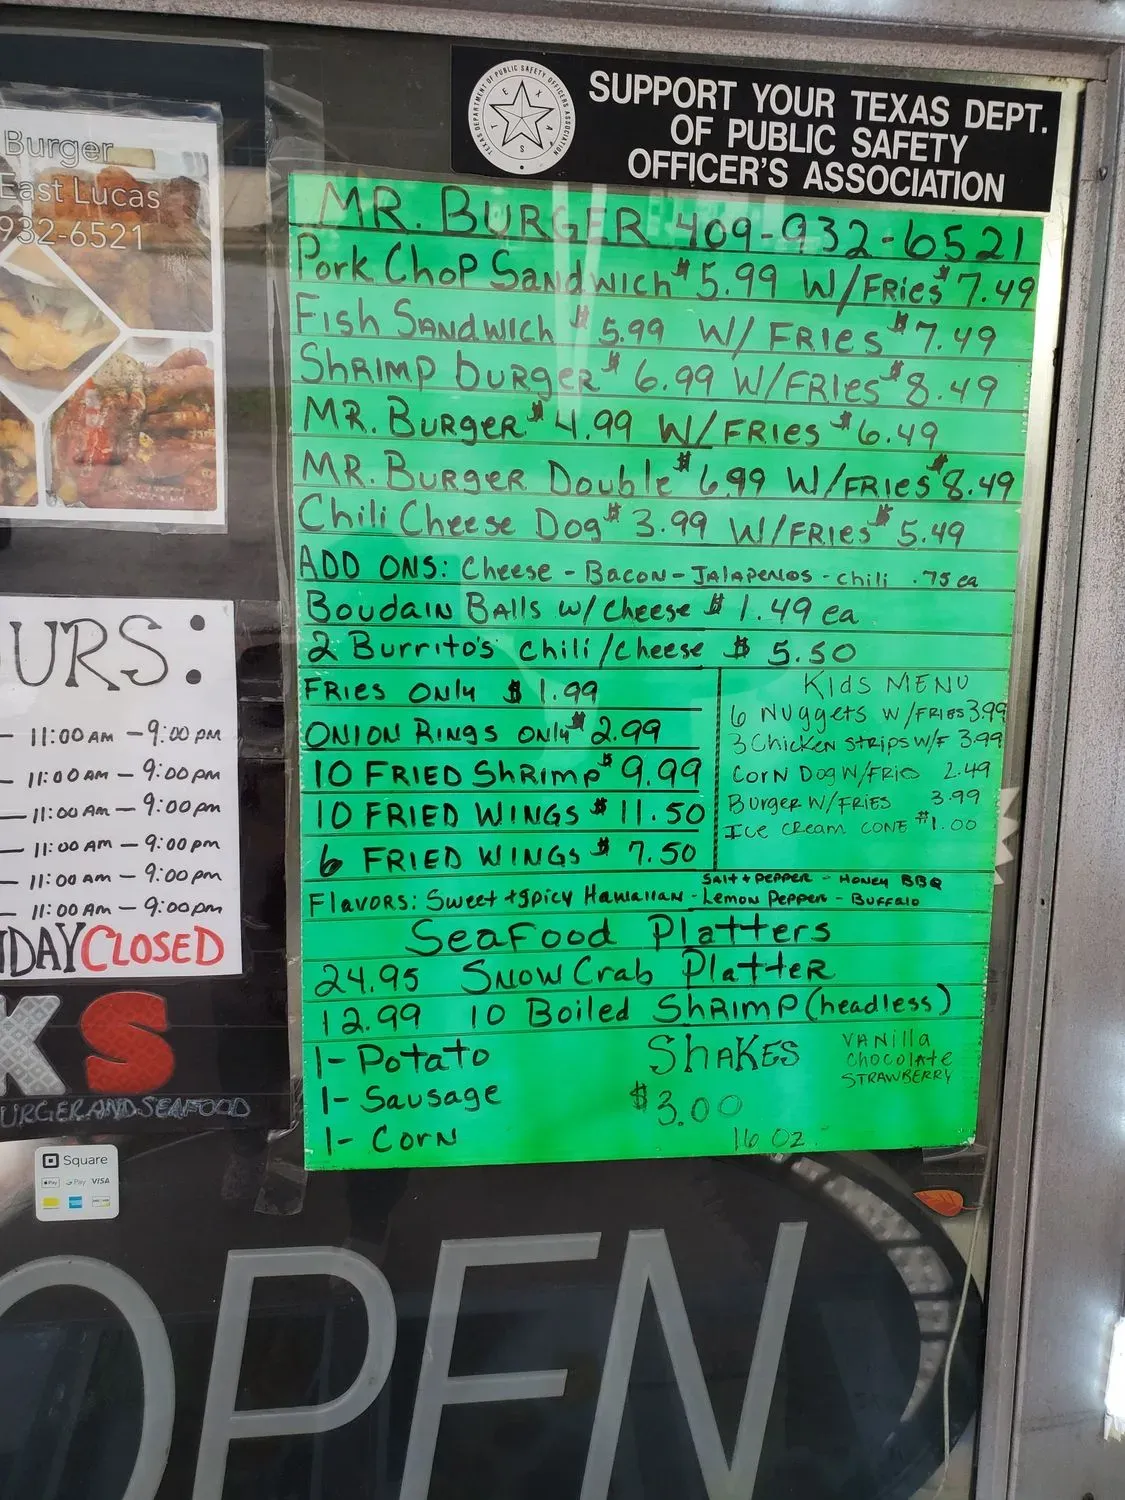 SUPPORT YOUR TEXAS DEPT.
OF PUBLIC SAFETY
OFFICER'S ASSOCIATION
TEXAS DEPARTMENT OF PUBLIC SAFETY OFFICERS ASSOCIATION
TEXAS
Burger
East Lucas
932-6521
MR. BURGER 409-932-6521
Pork Chop Sandwich $5.99 W/Fries $7.49
Fish Sandwich $5.99 W/ Fries $7.49
Shrimp burger $6.99 W/Fries $8.49
MR. Burger $4.99 W/Fries $6.49
MR. Burger Double $6.99 W/Fries $8.49
Chili Cheese Dog $3.99 W/Fries $5.49
ADD ONS: Cheese - Bacon - Jalapenos - chili .75 ea
Boudain Balls w/cheese $1.49 ea
2 Burrito's chili/cheese $5.50
Fries only $1.99
Onion Rings only $2.99
10 Fried Shrimp $9.99
10 Fried Wings $11.50
6 Fried Wings $7.50
Kids Menu
6 Nuggets w/Fries 3.99
3 Chicken strips w/F 3.99
Corn Dog w/Fries 2.49
Burger w/Fries 3.99
Ice cream cone $1.00
Salt + Pepper - Honey BBQ
Flavors: Sweet + spicy Hawaiian - Lemon Pepper - Buffalo
Seafood Platters
24.95 Snow Crab Platter
12.99 10 Boiled Shrimp (headless)
1- Potato
1- Sausage
1- Corn
Shakes
$3.00
16 oz
Vanilla
Chocolate
Strawberry
URS:
- 11:00 AM - 9:00 pm
- 11:00 AM - 9:00 pm
- 11:00 AM - 9:00 pm
- 11:00 AM - 9:00 pm
- 11:00 AM - 9:00 pm
- 11:00 AM - 9:00 pm
NDAY CLOSED
KS
URGERANDSEAFOOD
Square
Pay Pay VISA
OPEN